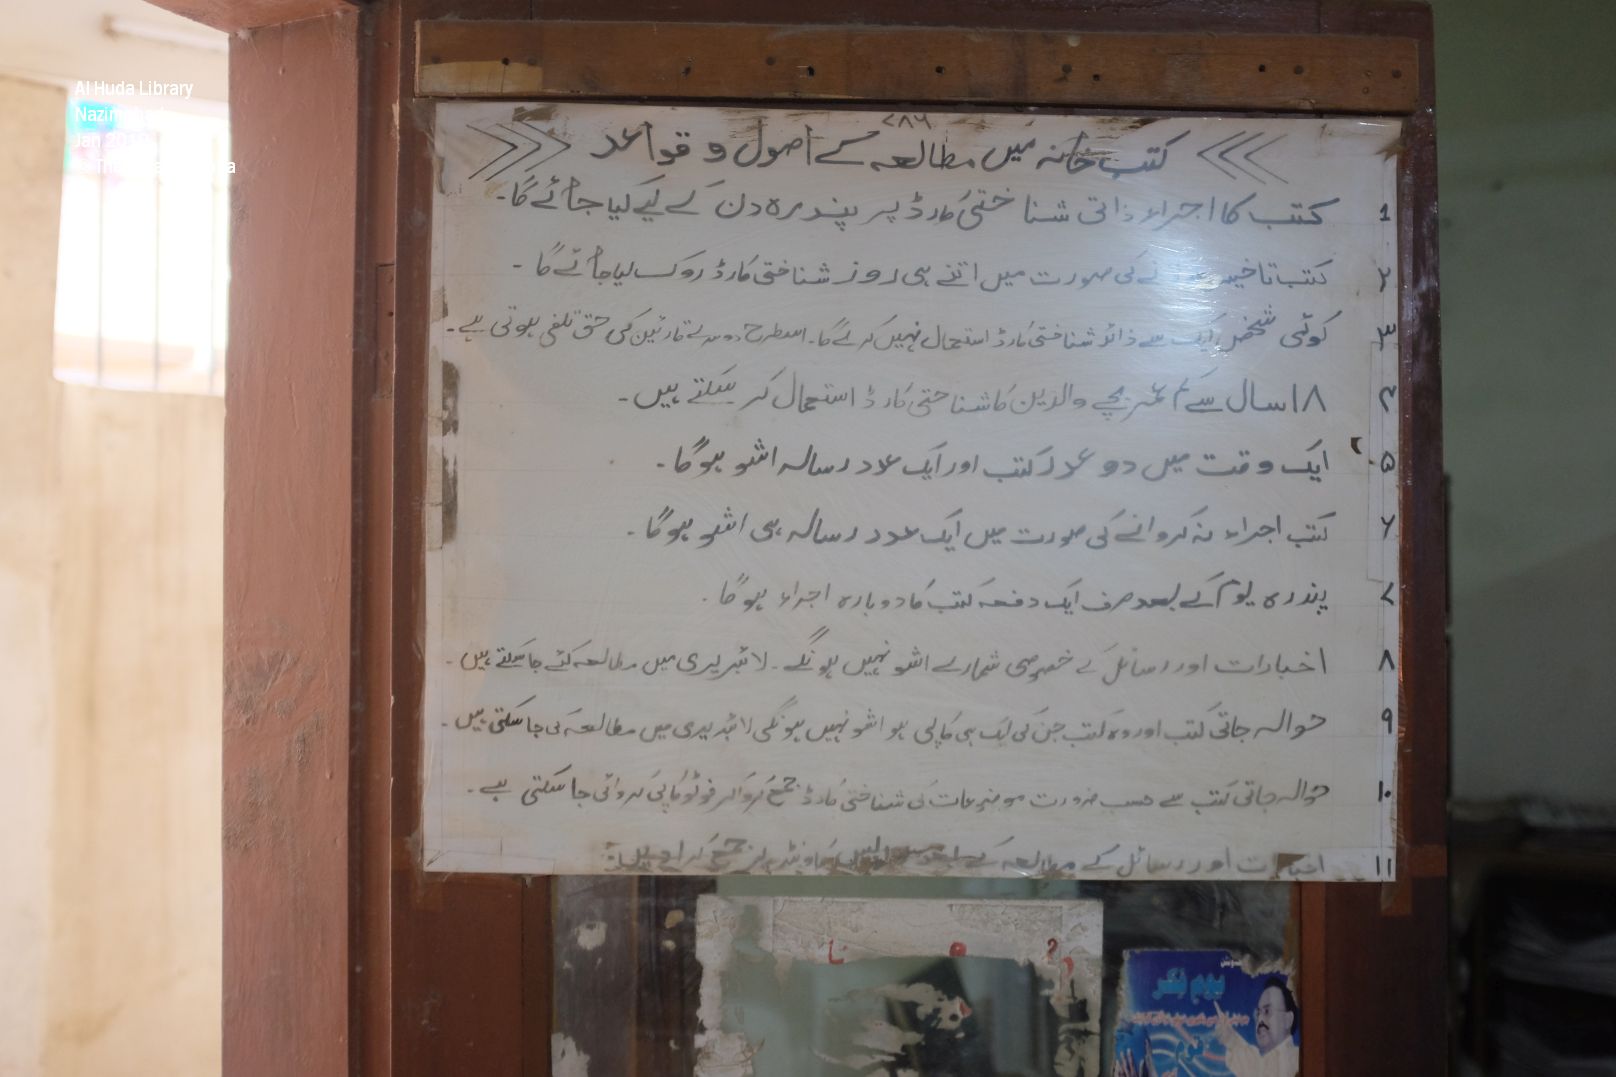 Al Huda Library
Jan
۷۸۶
کتب خانہ میں مطالعہ کے اصول و قواعد
1 کتب کا اجراء ذاتی شناختی کارڈ پر پندرہ دن کے لیے کیا جائے گا۔
۲ کتب تاخیر کی صورت میں اتنے ہی روز شناختی کارڈ روک لیا جائے گا۔
۳ کوئی شخص ایک سے ذائد شناختی کارڈ استعمال نہیں کرے گا۔ اسطرح دوسرے قارئین کی حق تلفی ہوتی ہے۔
۴ ۱۸ سال سے کم عمر بچے والدین کا شناختی کارڈ استعمال کر سکتے ہیں۔
۵ ایک وقت میں دو عدد کتب اور ایک عدد رسالہ اشو ہوگا۔
۶ کتب اجراء نہ کروانے کی صورت میں ایک عدد رسالہ ہی اشو ہوگا۔
۷ پندرہ یوم کے بعد صرف ایک دفعہ کتب کا دوبارہ اجراء ہوگا۔
۸ اخبارات اور رسائل کے خصوصی شمارے اشو نہیں ہونگے۔ لائبریری میں مطالعہ کئے جا سکتے ہیں۔
۹ حوالہ جاتی کتب اور وہ کتب جن کی ایک ہی کاپی ہو اشو نہیں ہونگی لائبریری میں مطالعہ کی جا سکتی ہیں۔
۱۰ حوالہ جاتی کتب سے حسب ضرورت موضوعات کی شناختی کارڈ جمع کرواکر فوٹو کاپی کروائی جا سکتی ہے۔
۱۱ اخبارات اور رسائل کے مطالعہ کے بعد واپس کاونٹر پر جمع کرا دیں۔
یوم فکر